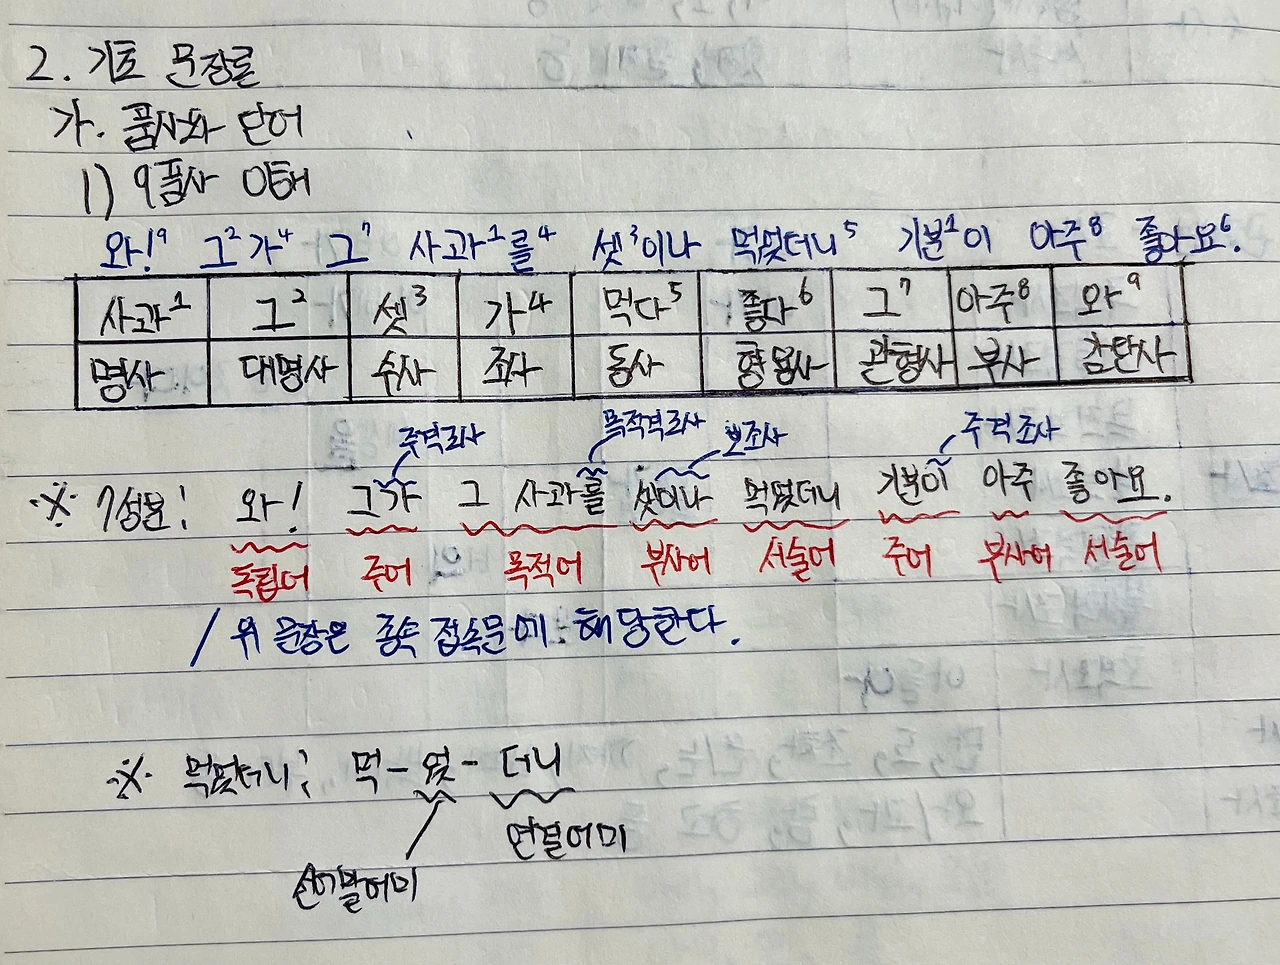 2. 기초 문장론
가. 품사와 단어
1) 9품사 이해
와!⁹ 그²가⁴ 그⁷ 사과¹를⁴ 셋³이나 먹었더니⁵ 기분¹이 아주⁸ 좋아요⁶.
사과¹ 그² 셋³ 가⁴ 먹다⁵ 좋다⁶ 그⁷ 아주⁸ 와⁹
명사 대명사 수사 조사 동사 형용사 관형사 부사 감탄사
주격조사 목적격조사 보조사 주격조사
※ 7성분: 와! 그가 그 사과를 셋이나 먹었더니 기분이 아주 좋아요.
독립어 주어 목적어 부사어 서술어 주어 부사어 서술어
/ 위 문장은 종속 접속문에 해당한다.
※ 먹었더니: 먹-었-더니
연결어미
선어말어미